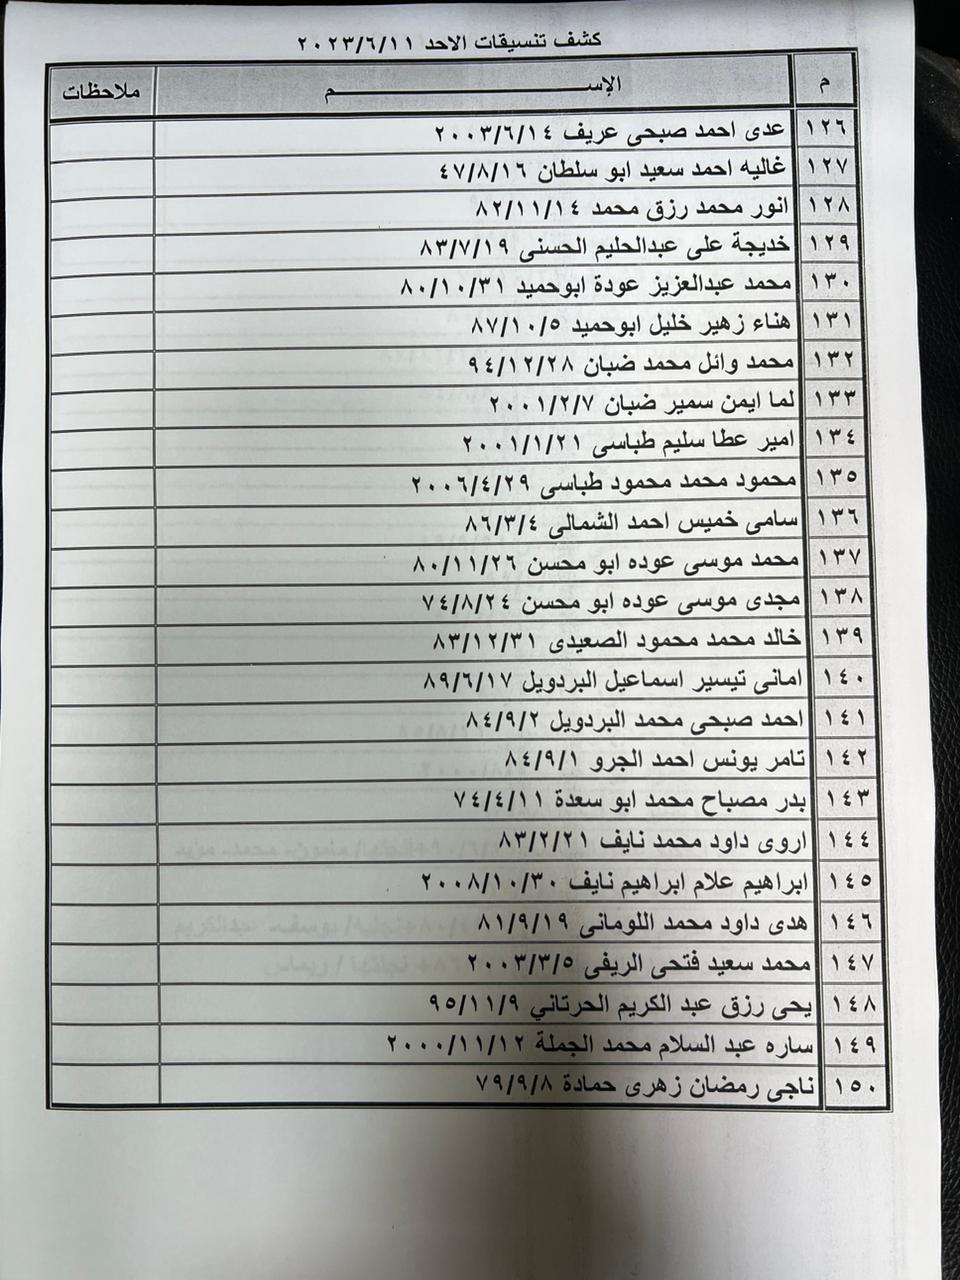 كشف تنسيقات الاحد ٢٠٢٣/٦/١١
م الإســـــــــــــــم ملاحظات
١٢٦ عدى احمد صبحى عريف ٢٠٠٣/٦/١٤
١٢٧ غاليه احمد سعيد ابو سلطان ٤٧/٨/١٦
١٢٨ انور محمد رزق محمد ٨٢/١١/١٤
١٢٩ خديجة على عبدالحليم الحسنى ٨٣/٧/١٩
١٣٠ محمد عبدالعزيز عودة ابوحميد ٨٠/١٠/٣١
١٣١ هناء زهير خليل ابوحميد ٨٧/١٠/٥
١٣٢ محمد وائل محمد ضبان ٩٤/١٢/٢٨
١٣٣ لما ايمن سمير ضبان ٢٠٠١/٢/٧
١٣٤ امير عطا سليم طباسى ٢٠٠١/١/٢١
١٣٥ محمود محمد محمود طباسى ٢٠٠٦/٤/٢٩
١٣٦ سامى خميس احمد الشمالى ٨٦/٣/٤
١٣٧ محمد موسى عوده ابو محسن ٨٠/١١/٢٦
١٣٨ مجدى موسى عوده ابو محسن ٧٤/٨/٢٤
١٣٩ خالد محمد محمود الصعيدى ٨٣/١٢/٣١
١٤٠ امانى تيسير اسماعيل البردويل ٨٩/٦/١٧
١٤١ احمد صبحى محمد البردويل ٨٤/٩/٢
١٤٢ تامر يونس احمد الجرو ٨٤/٩/١
١٤٣ بدر مصباح محمد ابو سعدة ٧٤/٤/١١
١٤٤ اروى داود محمد نايف ٨٣/٢/٢١
١٤٥ ابراهيم علام ابراهيم نايف ٢٠٠٨/١٠/٣٠
١٤٦ هدى داود محمد اللومانى ٨١/٩/١٩
١٤٧ محمد سعيد فتحى الريفى ٢٠٠٣/٣/٥
١٤٨ يحى رزق عبد الكريم الحرتاني ٩٥/١١/٩
١٤٩ ساره عبد السلام محمد الجملة ٢٠٠٠/١١/١٢
١٥٠ ناجى رمضان زهرى حمادة ٧٩/٩/٨